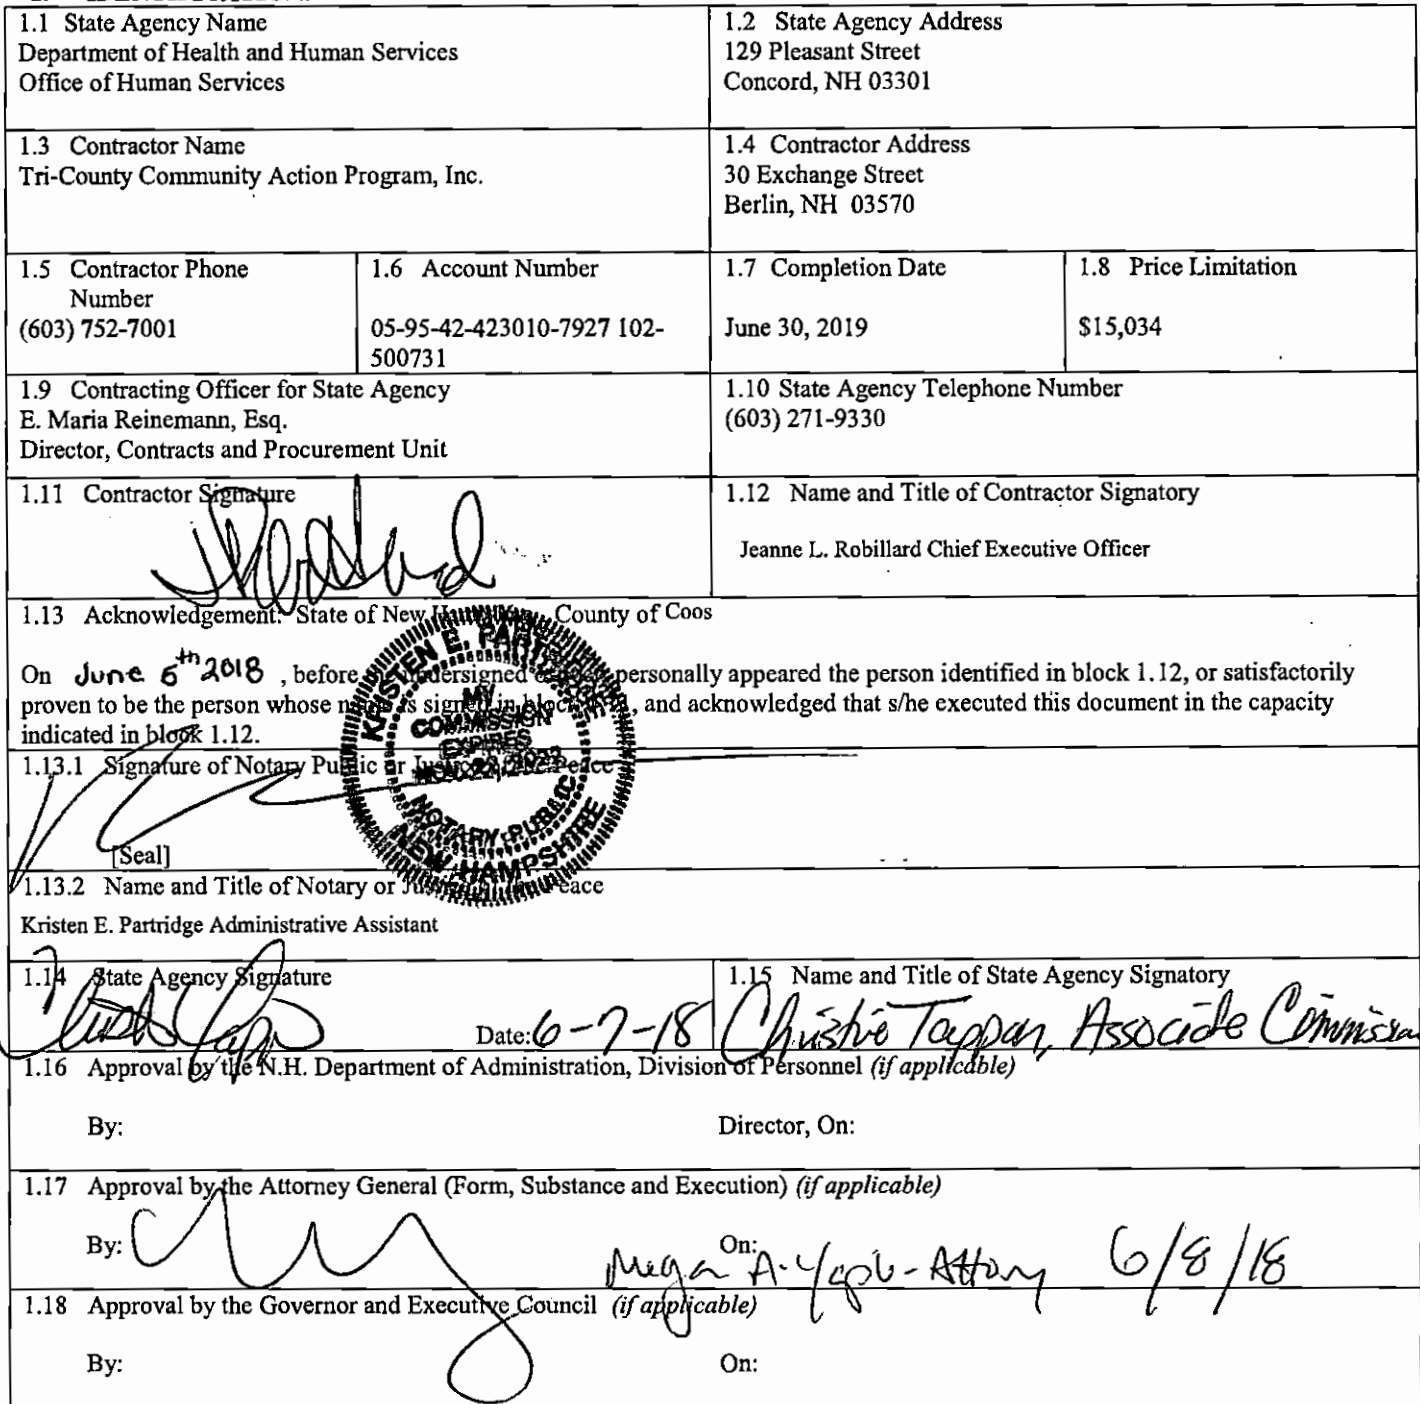 1.1 State Agency Name
Department of Health and Human Services
Office of Human Services
1.2 State Agency Address
129 Pleasant Street
Concord, NH 03301
1.3 Contractor Name
Tri-County Community Action Program, Inc.
1.4 Contractor Address
30 Exchange Street
Berlin, NH 03570
1.5 Contractor Phone
Number
(603) 752-7001
1.6 Account Number
05-95-42-423010-7927 102-
500731
1.7 Completion Date
June 30, 2019
1.8 Price Limitation
$15,034
1.9 Contracting Officer for State Agency
E. Maria Reinemann, Esq.
Director, Contracts and Procurement Unit
1.10 State Agency Telephone Number
(603) 271-9330
1.11 Contractor Signature
1.12 Name and Title of Contractor Signatory
Jeanne L. Robillard Chief Executive Officer
1.13 Acknowledgement: State of New Hampshire, County of Coos
On June 5th 2018, before undersigned personally appeared the person identified in block 1.12, or satisfactorily
proven to be the person whose name is signed in block, and acknowledged that s/he executed this document in the capacity
indicated in block 1.12.
KRISTEN E. PARTRIDGE
MY
COMMISSION
EXPIRES
NOTARY PUBLIC
NEW HAMPSHIRE
1.13.1 Signature of Notary Public or Justice of the Peace
[Seal]
1.13.2 Name and Title of Notary or Justice of the Peace
Kristen E. Partridge Administrative Assistant
1.14 State Agency Signature
Date: 6-7-18
1.15 Name and Title of State Agency Signatory
Christie Tappan, Associate
1.16 Approval by the N.H. Department of Administration, Division of Personnel (if applicable)
By:
Director, On:
1.17 Approval by the Attorney General (Form, Substance and Execution) (if applicable)
By:
On:
Megan A. - Attorney 6/8/18
1.18 Approval by the Governor and Executive Council (if applicable)
By:
On: